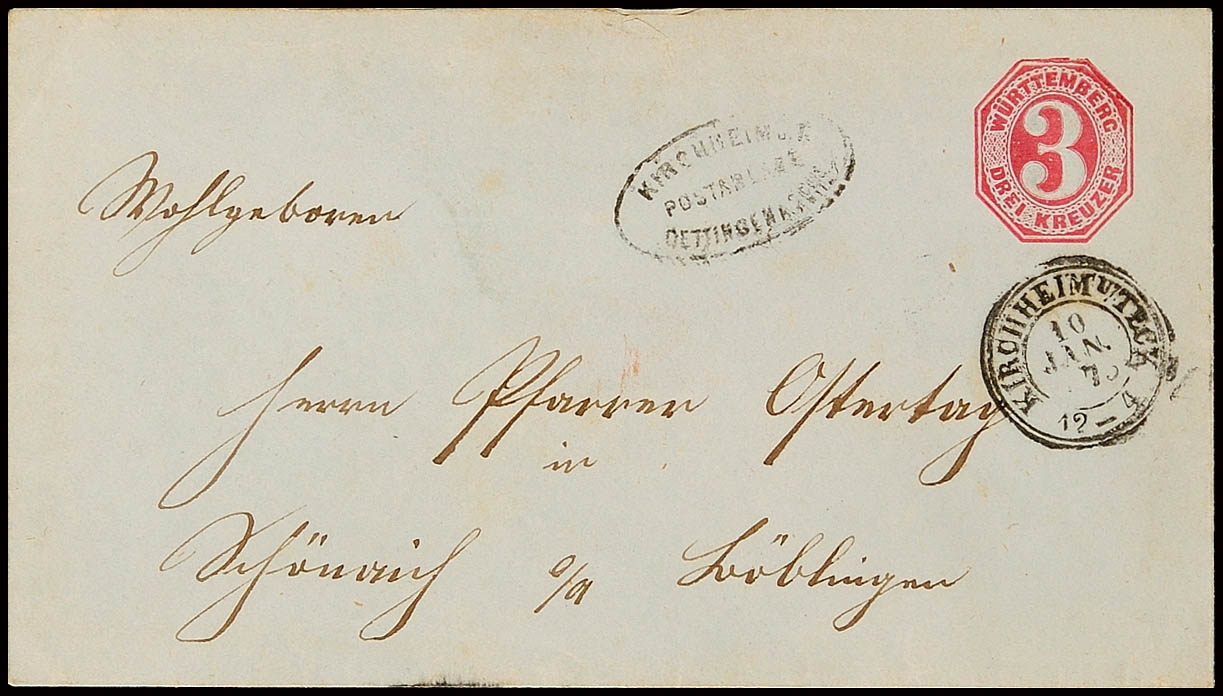 WÜRTTEMBERG
3
DREI KREUZER
KIRCHHEIM U. T.
POSTABLAGE
OETTINGEN
Wohlgeboren
KIRCHHEIM U TECK
10
JAN.
12-4
Herrn Pfarrer Ostertag
in
Schönaich O/A Böblingen